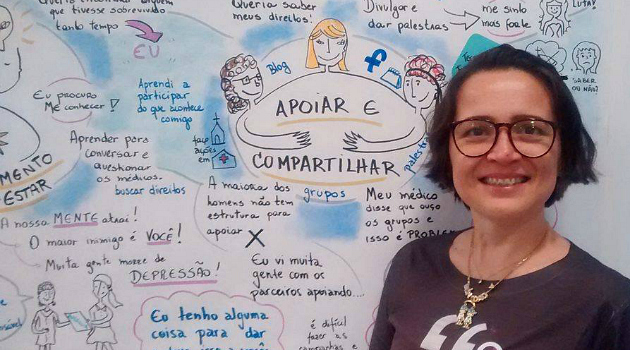 que tivesse sobrevivido
tanto tempo
EU
Eu procuro
me conhecer!
Queria saber
meus direitos!
Divulgar e
dar palestras
me sinto
mais forte
LUTAR
SABER
OU NÃO?
Blog
f
Aprendi a
participar
do que acontece
comigo
APOIAR E
COMPARTILHAR
faço
ações
em
grupos
palestras
MENTO
ESTAR
Aprender para
conversar e
questionar
os médicos.
buscar direitos
A nossa MENTE atrai!
O maior inimigo é VOCÊ!
Muita gente morre de
DEPRESSÃO!
A maioria dos
homens não tem
estrutura para
apoiar
X
Eu vi muita
gente com os
parceiros apoiando....
Meu médico
disse que ouço
os grupos e
isso é PROBLEM
Eu tenho alguma
coisa para dar
é difícil
fazer as
campanhas e